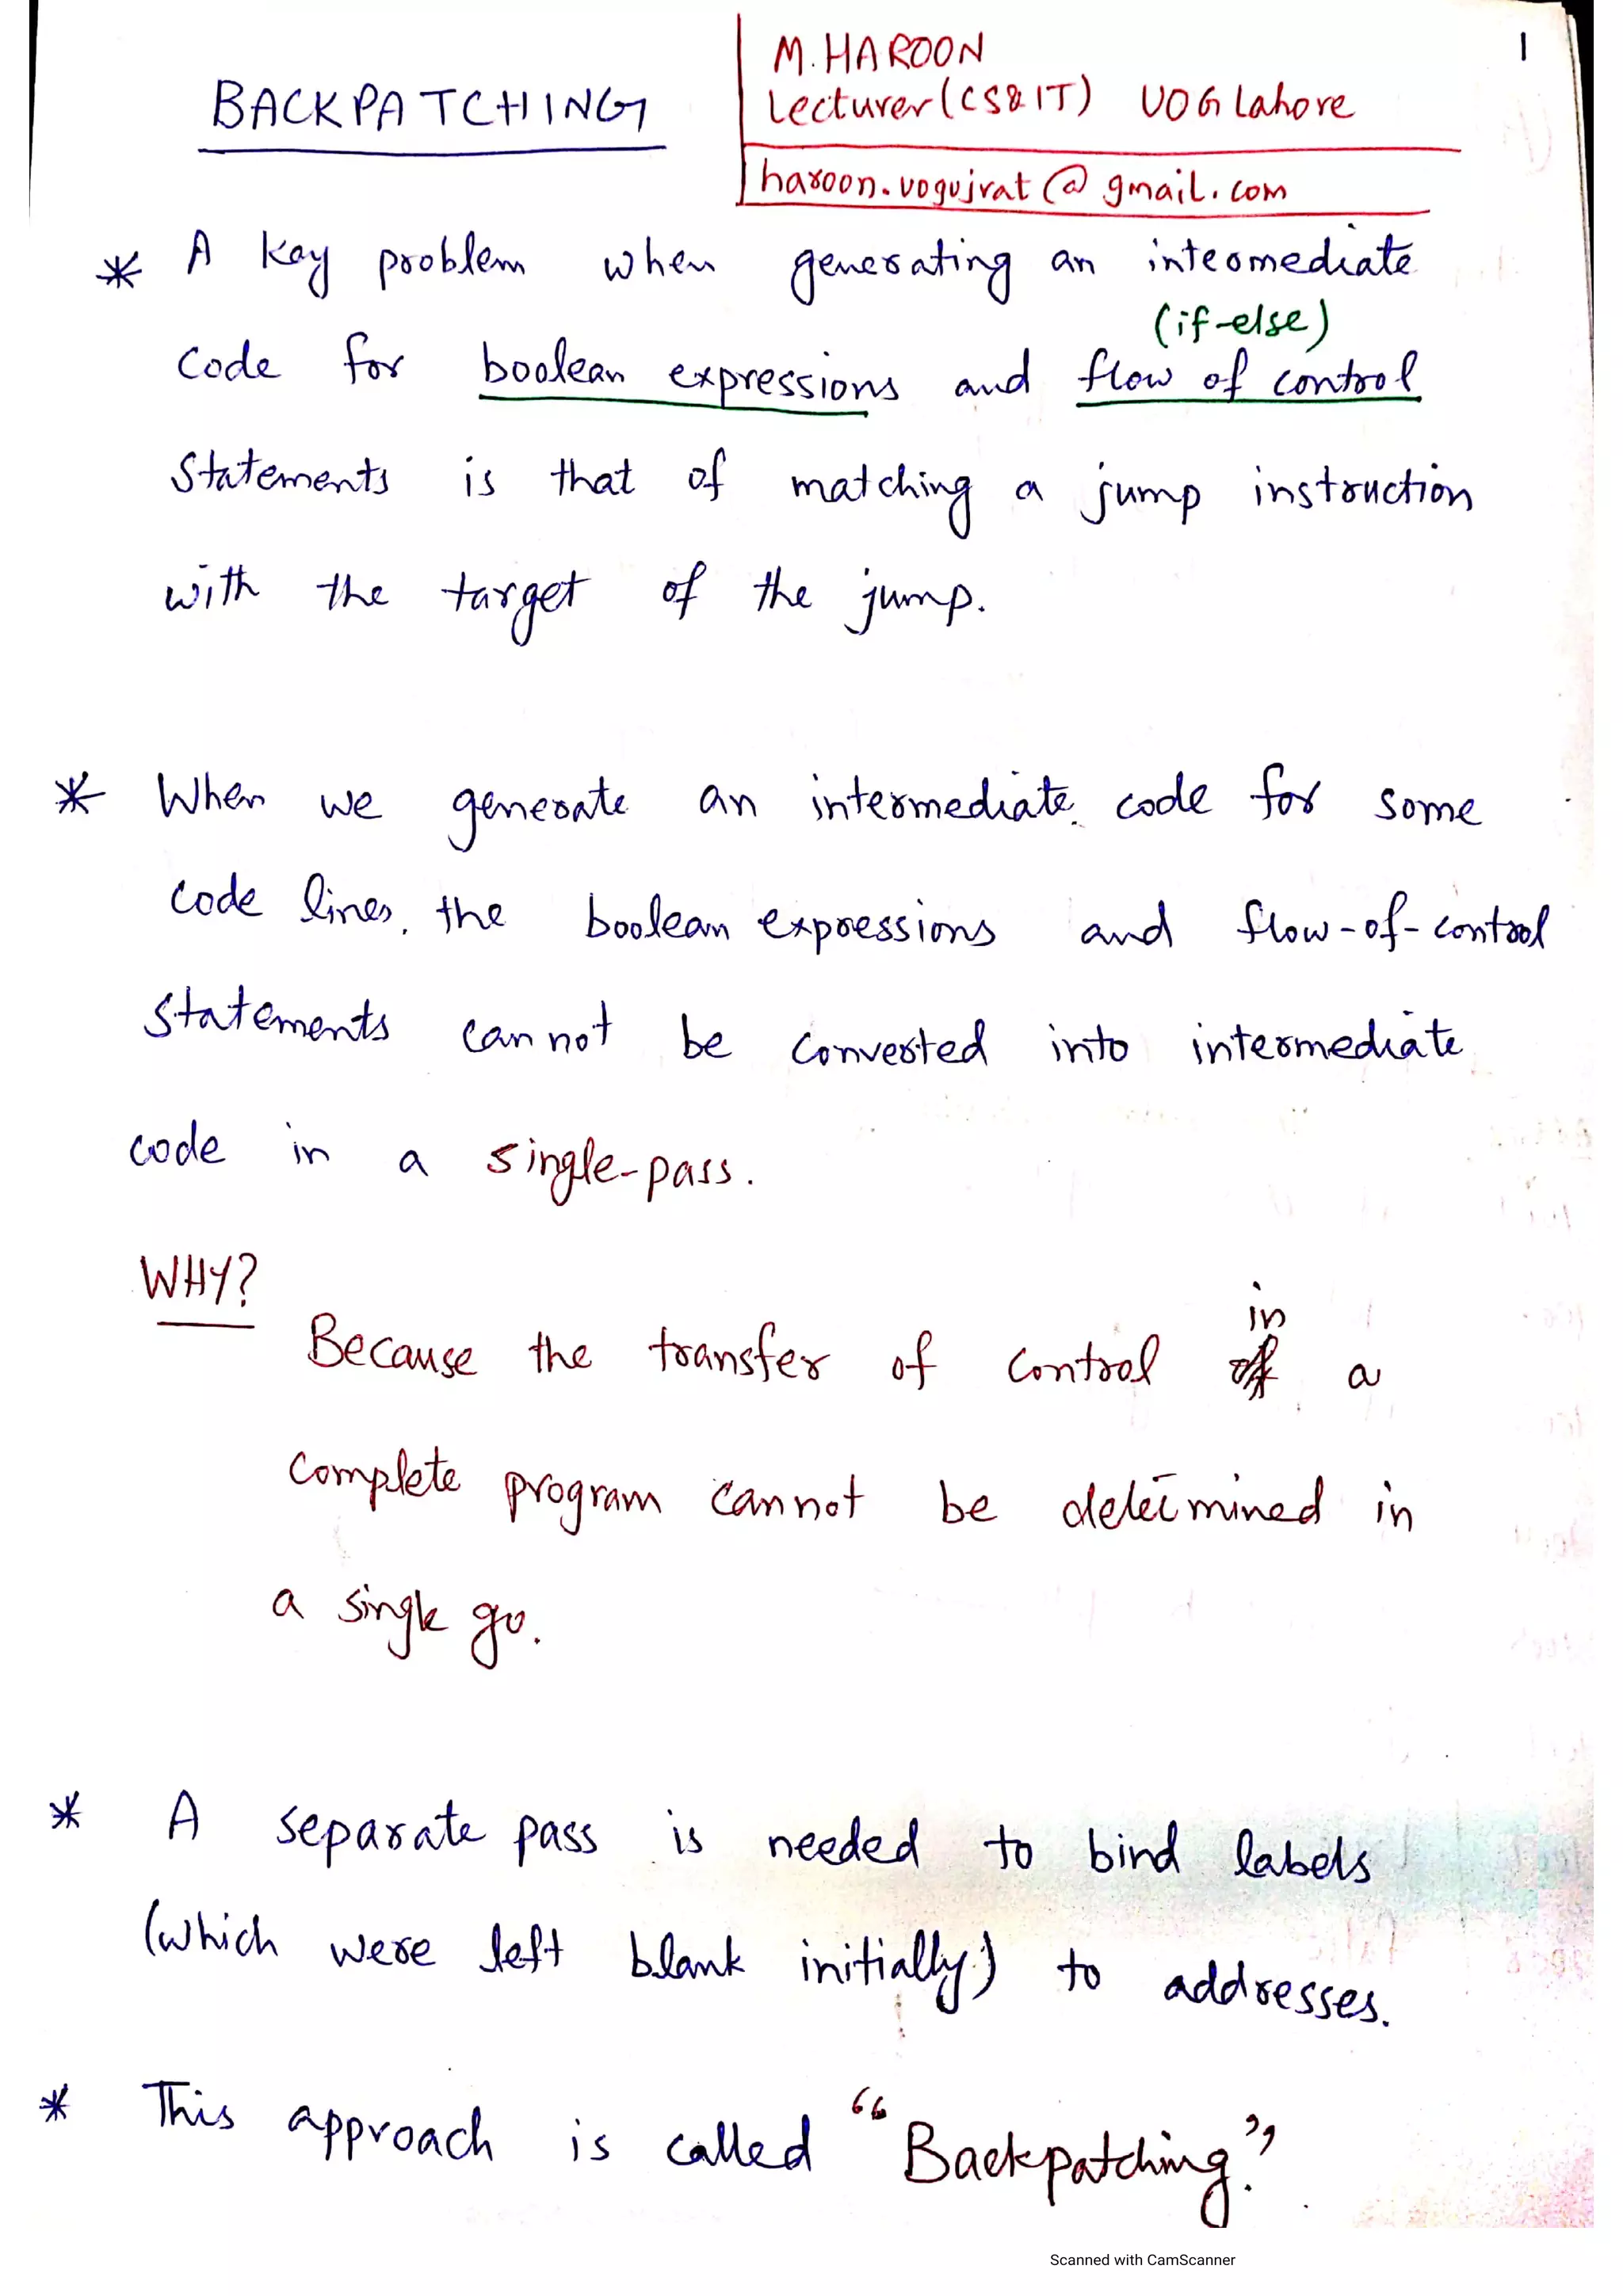 BACKPATCHING
M. HAROON
Lecturer (CS & IT) UOG Lahore
haroon.uogujrat@gmail.com
1
* A key problem when generating an intermediate
(if-else)
Code for boolean expressions and flow of control
Statements is that of matching a jump instruction
with the target of the jump.
* When we generate an intermediate code for some
code lines, the boolean expressions and flow-of-control
Statements cannot be converted into intermediate
code in a single-pass.
WHY?
in
Because the transfer of control of a
complete program cannot be determined in
a single go.
* A separate pass is needed to bind labels
(which were left blank initially) to addresses.
* This approach is called "Backpatching."
Scanned with CamScanner